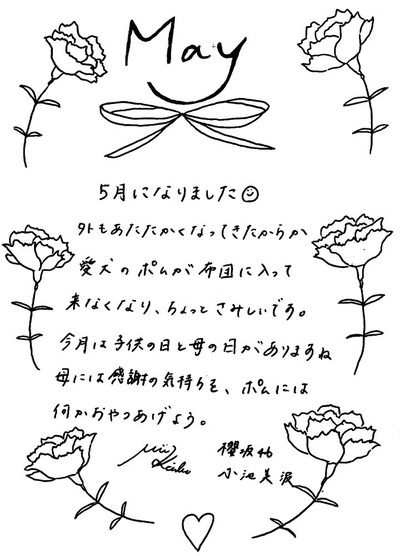 May
5月になりました☺
外もあたたかくなってきたからか
愛犬のポムが布団に入って
来なくなり、ちょっとさみしいです。
今月は子供の日と母の日がありますね
母には感謝の気持ちを、ポムには
何かおやつあげよう。
櫻坂46
小池美波